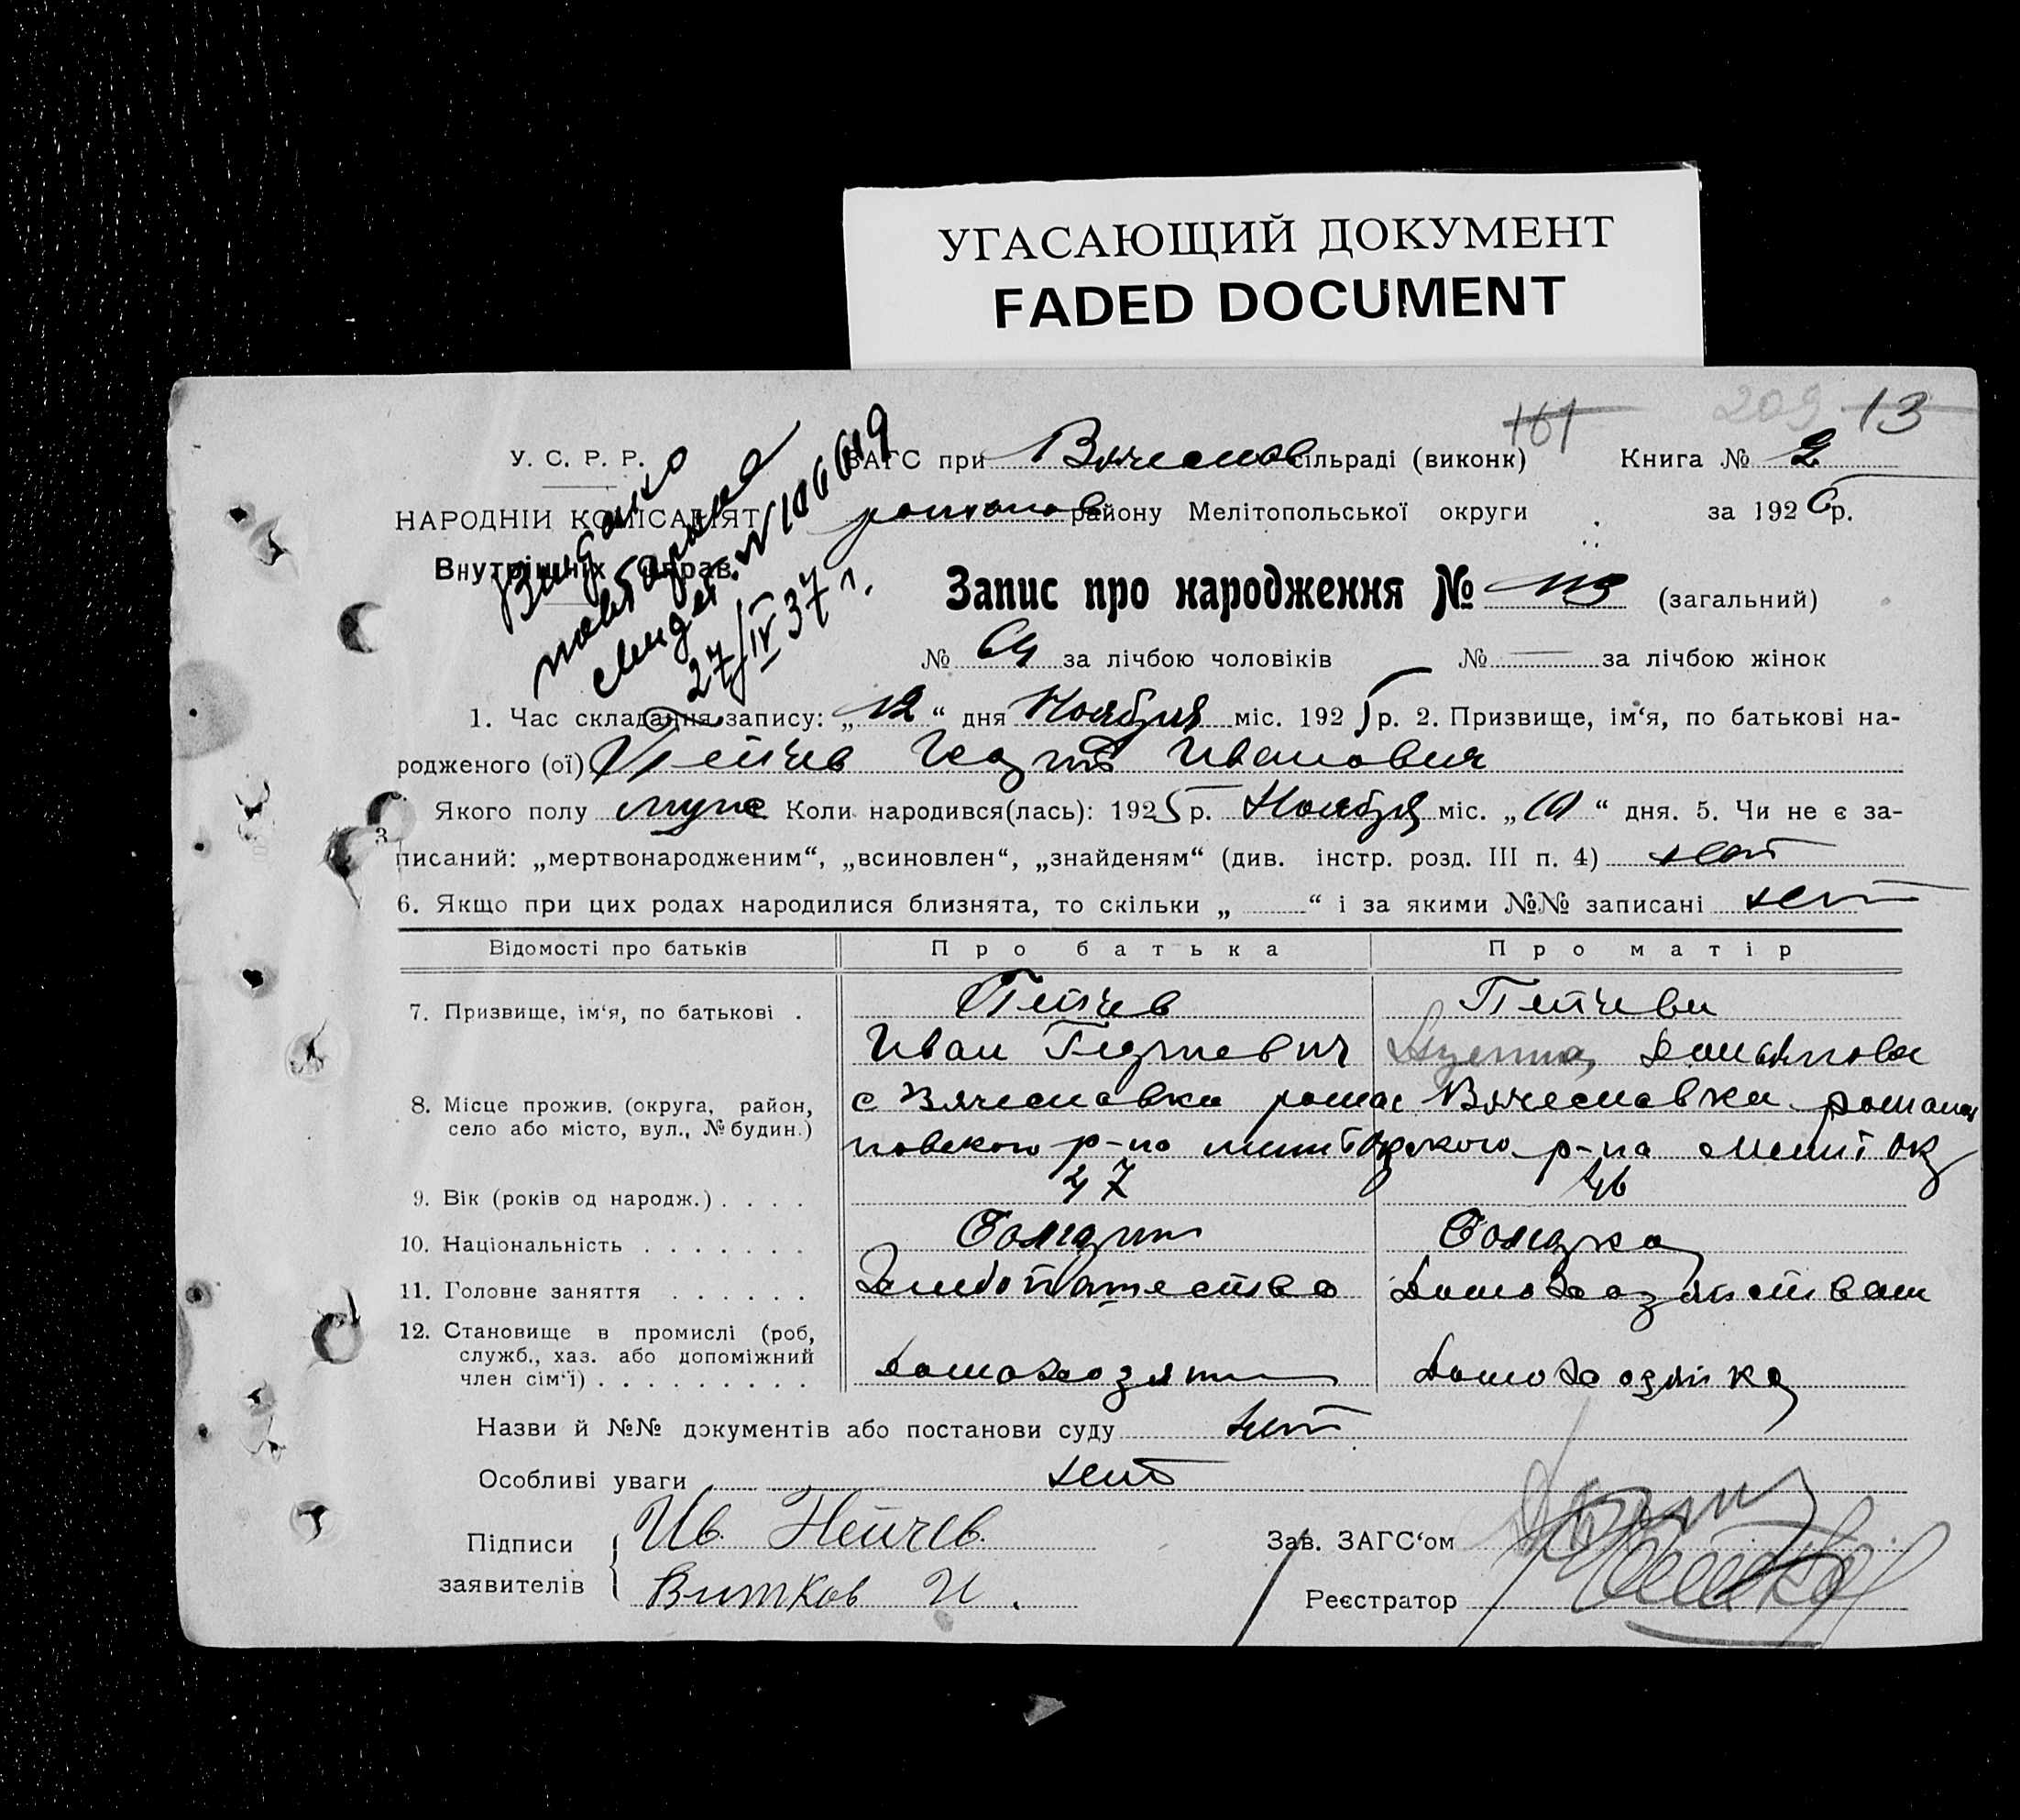 УГАСАЮЩИЙ ДОКУМЕНТ
FADED DOCUMENT
161 209 13
У. С. Р. Р.
ЗАГС при Вячеслов сільраді (виконк) Книга № 2
НАРОДНІЙ КОМІСАРІЯТ
романов району Мелітопольської округи за 1926 р.
Внутрішніх Справ.
Выдано
повторное
свидет. № 106619
27/IV 37 г.
Запис про народження № 113 (загальний)
№ 64 за лічбою чоловіків № — за лічбою жінок
1. Час складання запису: „12“ дня Ноября міс. 1925 р. 2. Призвище, ім‘я, по батькові на-
родженого (ої) Пейчев Иванович
3. Якого полу муже Коли народився(лась): 1925 р. Ноября міс. „10“ дня. 5. Чи не є за-
писаний: „мертвонародженим“, „всиновлен“, „знайденям“ (див. інстр. розд. III п. 4) нет
6. Якщо при цих родах народилися близнята, то скільки „ “ і за якими №№ записані нет
Відомості про батьків Про батька Про матір
7. Призвище, ім‘я, по батькові . Пейчев Пейчева
Иван Георгиевич
8. Місце прожив. (округа, район, с Вячеславка рома Вячеславка романов
село або місто, вул., № будин.) новского р-на ского р-на мелит ок
9. Вік (років од народж.) . . . . 47 46
10. Національність . . . . . . Болгарин Болгарка
11. Головне заняття . . . . . . Хлебопашество
12. Становище в промислі (роб,
служб., хаз. або допоміжний
член сім‘ї) . . . . . . . . . домохозяин домохозяйка
Назви й №№ документів або постанови суду нет
Особливі уваги нет
Підписи Ив. Пейчев. Зав. ЗАГС‘ом
заявителів Витков И. Реєстратор